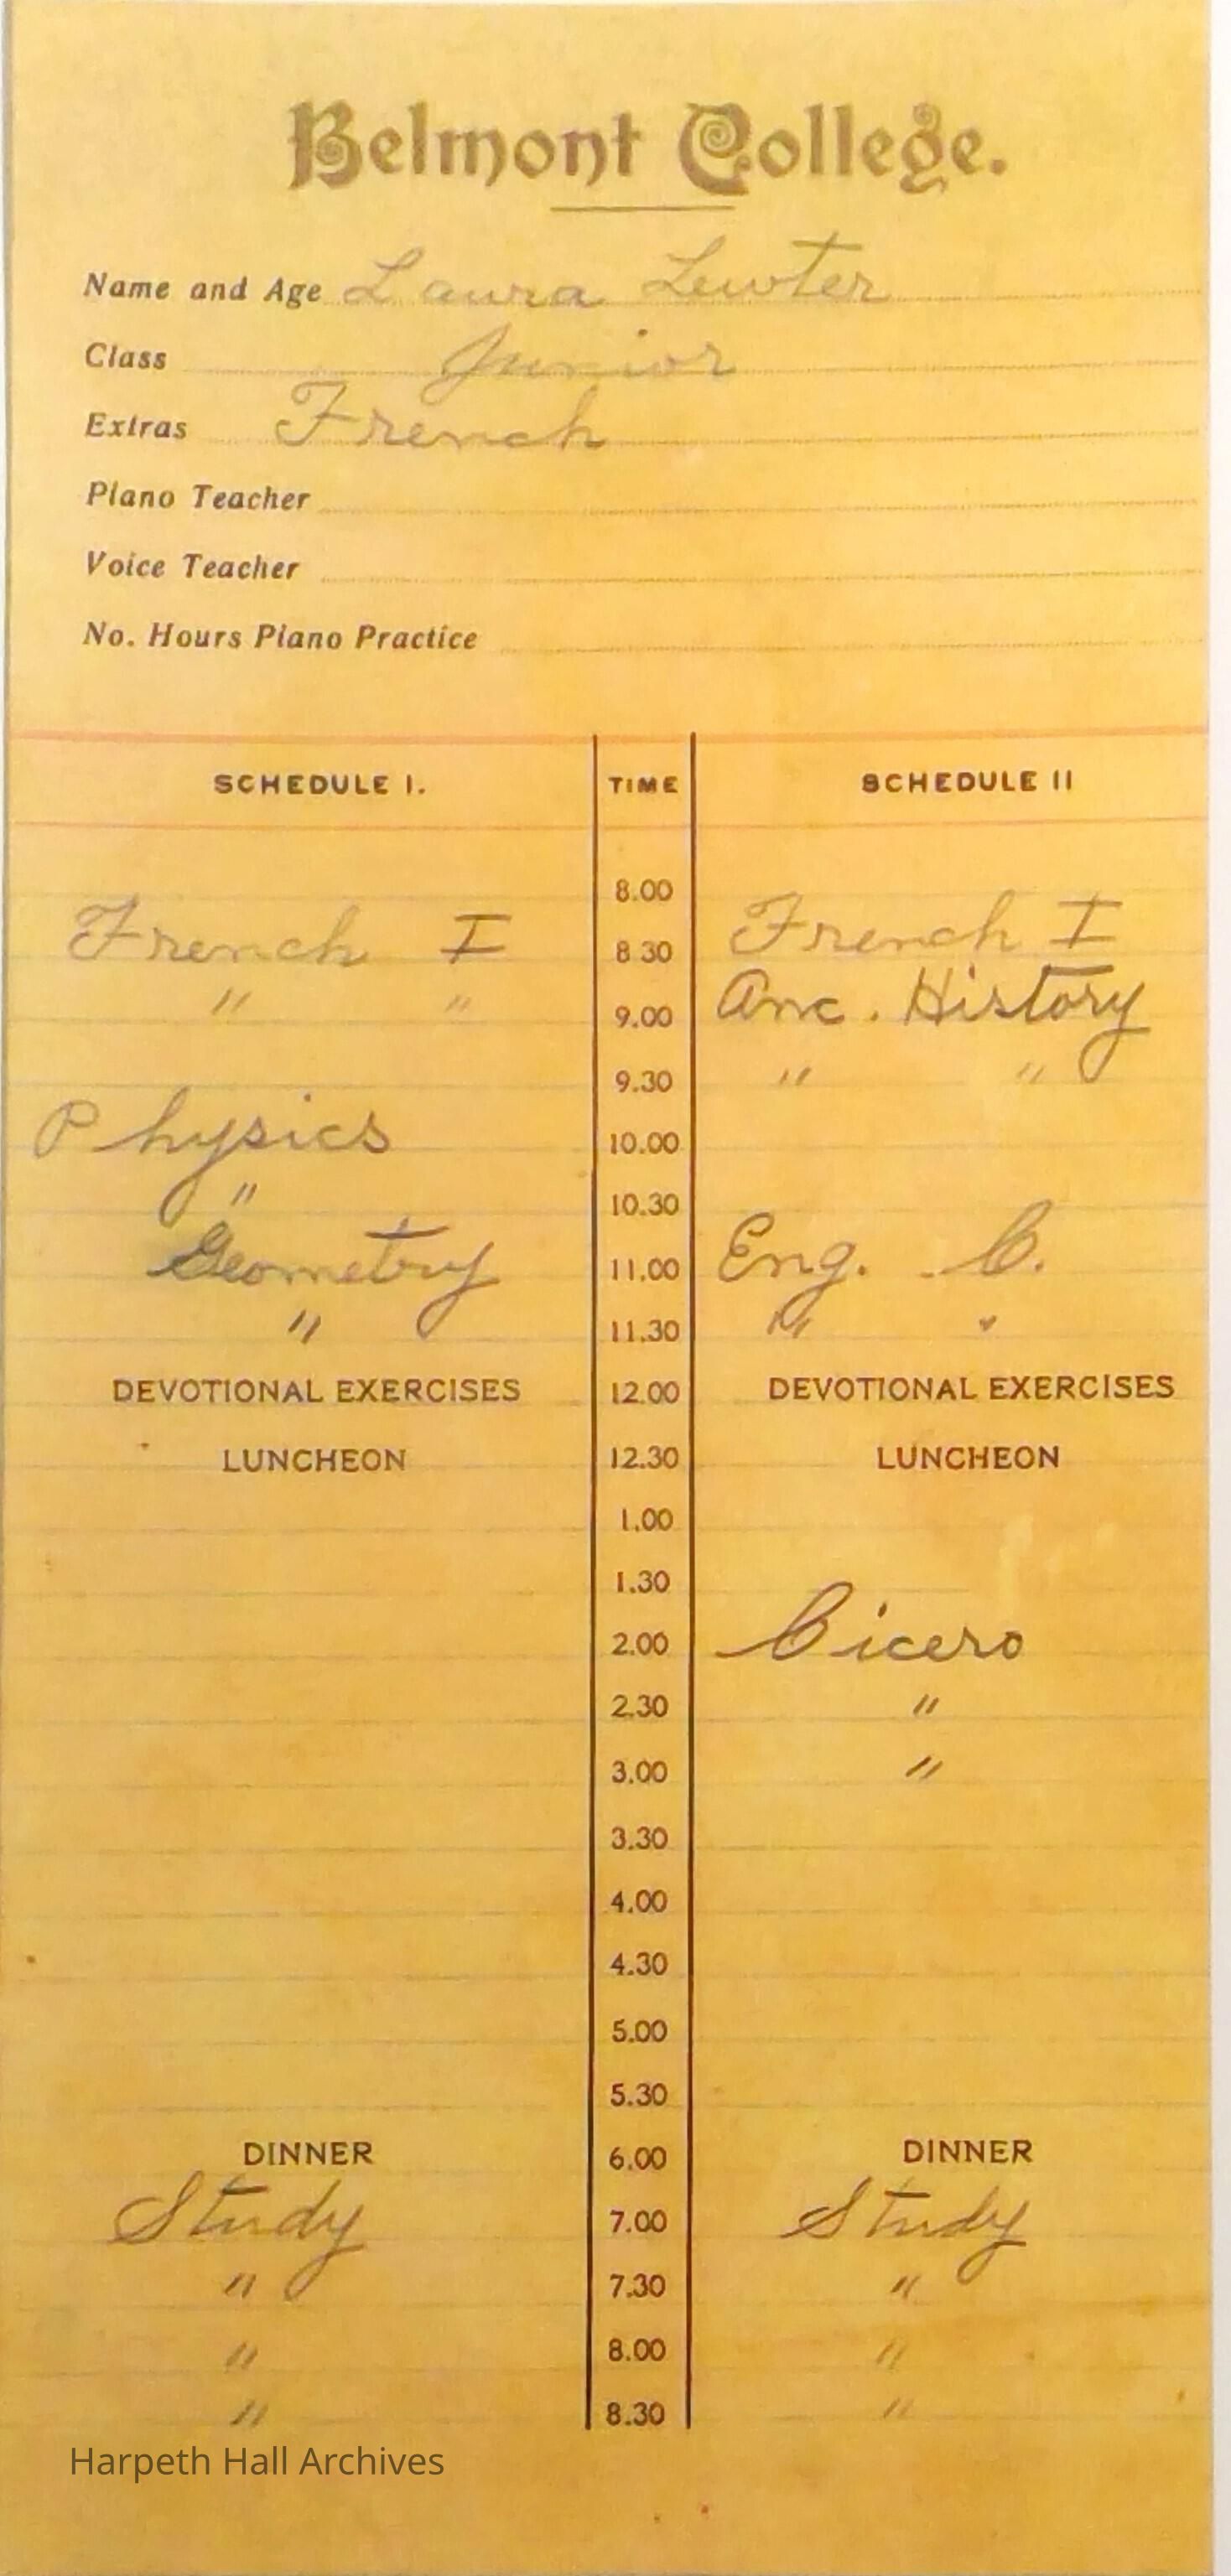 Belmont College.
Name and Age Laura Lewter
Class Junior
Extras French
Piano Teacher
Voice Teacher
No. Hours Piano Practice
SCHEDULE I. TIME SCHEDULE II
8.00
French I 8 30 French I
" " 9.00 Anc. History
9.30 " "
Physics 10.00
" 10.30
Geometry 11.00 Eng. C.
" 11.30 " "
DEVOTIONAL EXERCISES 12.00 DEVOTIONAL EXERCISES
LUNCHEON 12.30 LUNCHEON
1.00
1.30
2.00 Cicero
2.30 "
3.00 "
3.30
4.00
4.30
5.00
5.30
DINNER 6.00 DINNER
Study 7.00 Study
" 7.30 "
" 8.00 "
" 8.30 "
Harpeth Hall Archives